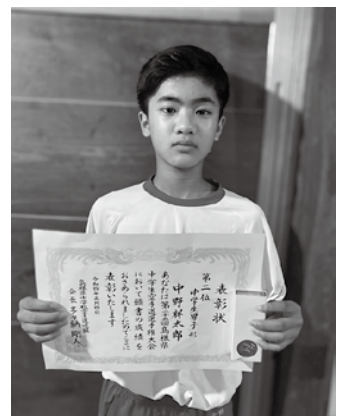 表彰状
第二位
中学生男子形
中野 太郎
あなたは第 回島根県
中学生空手道選手権大会
において頭書の成績を
おさめられましたのでここに
表彰いたします
令和
会長